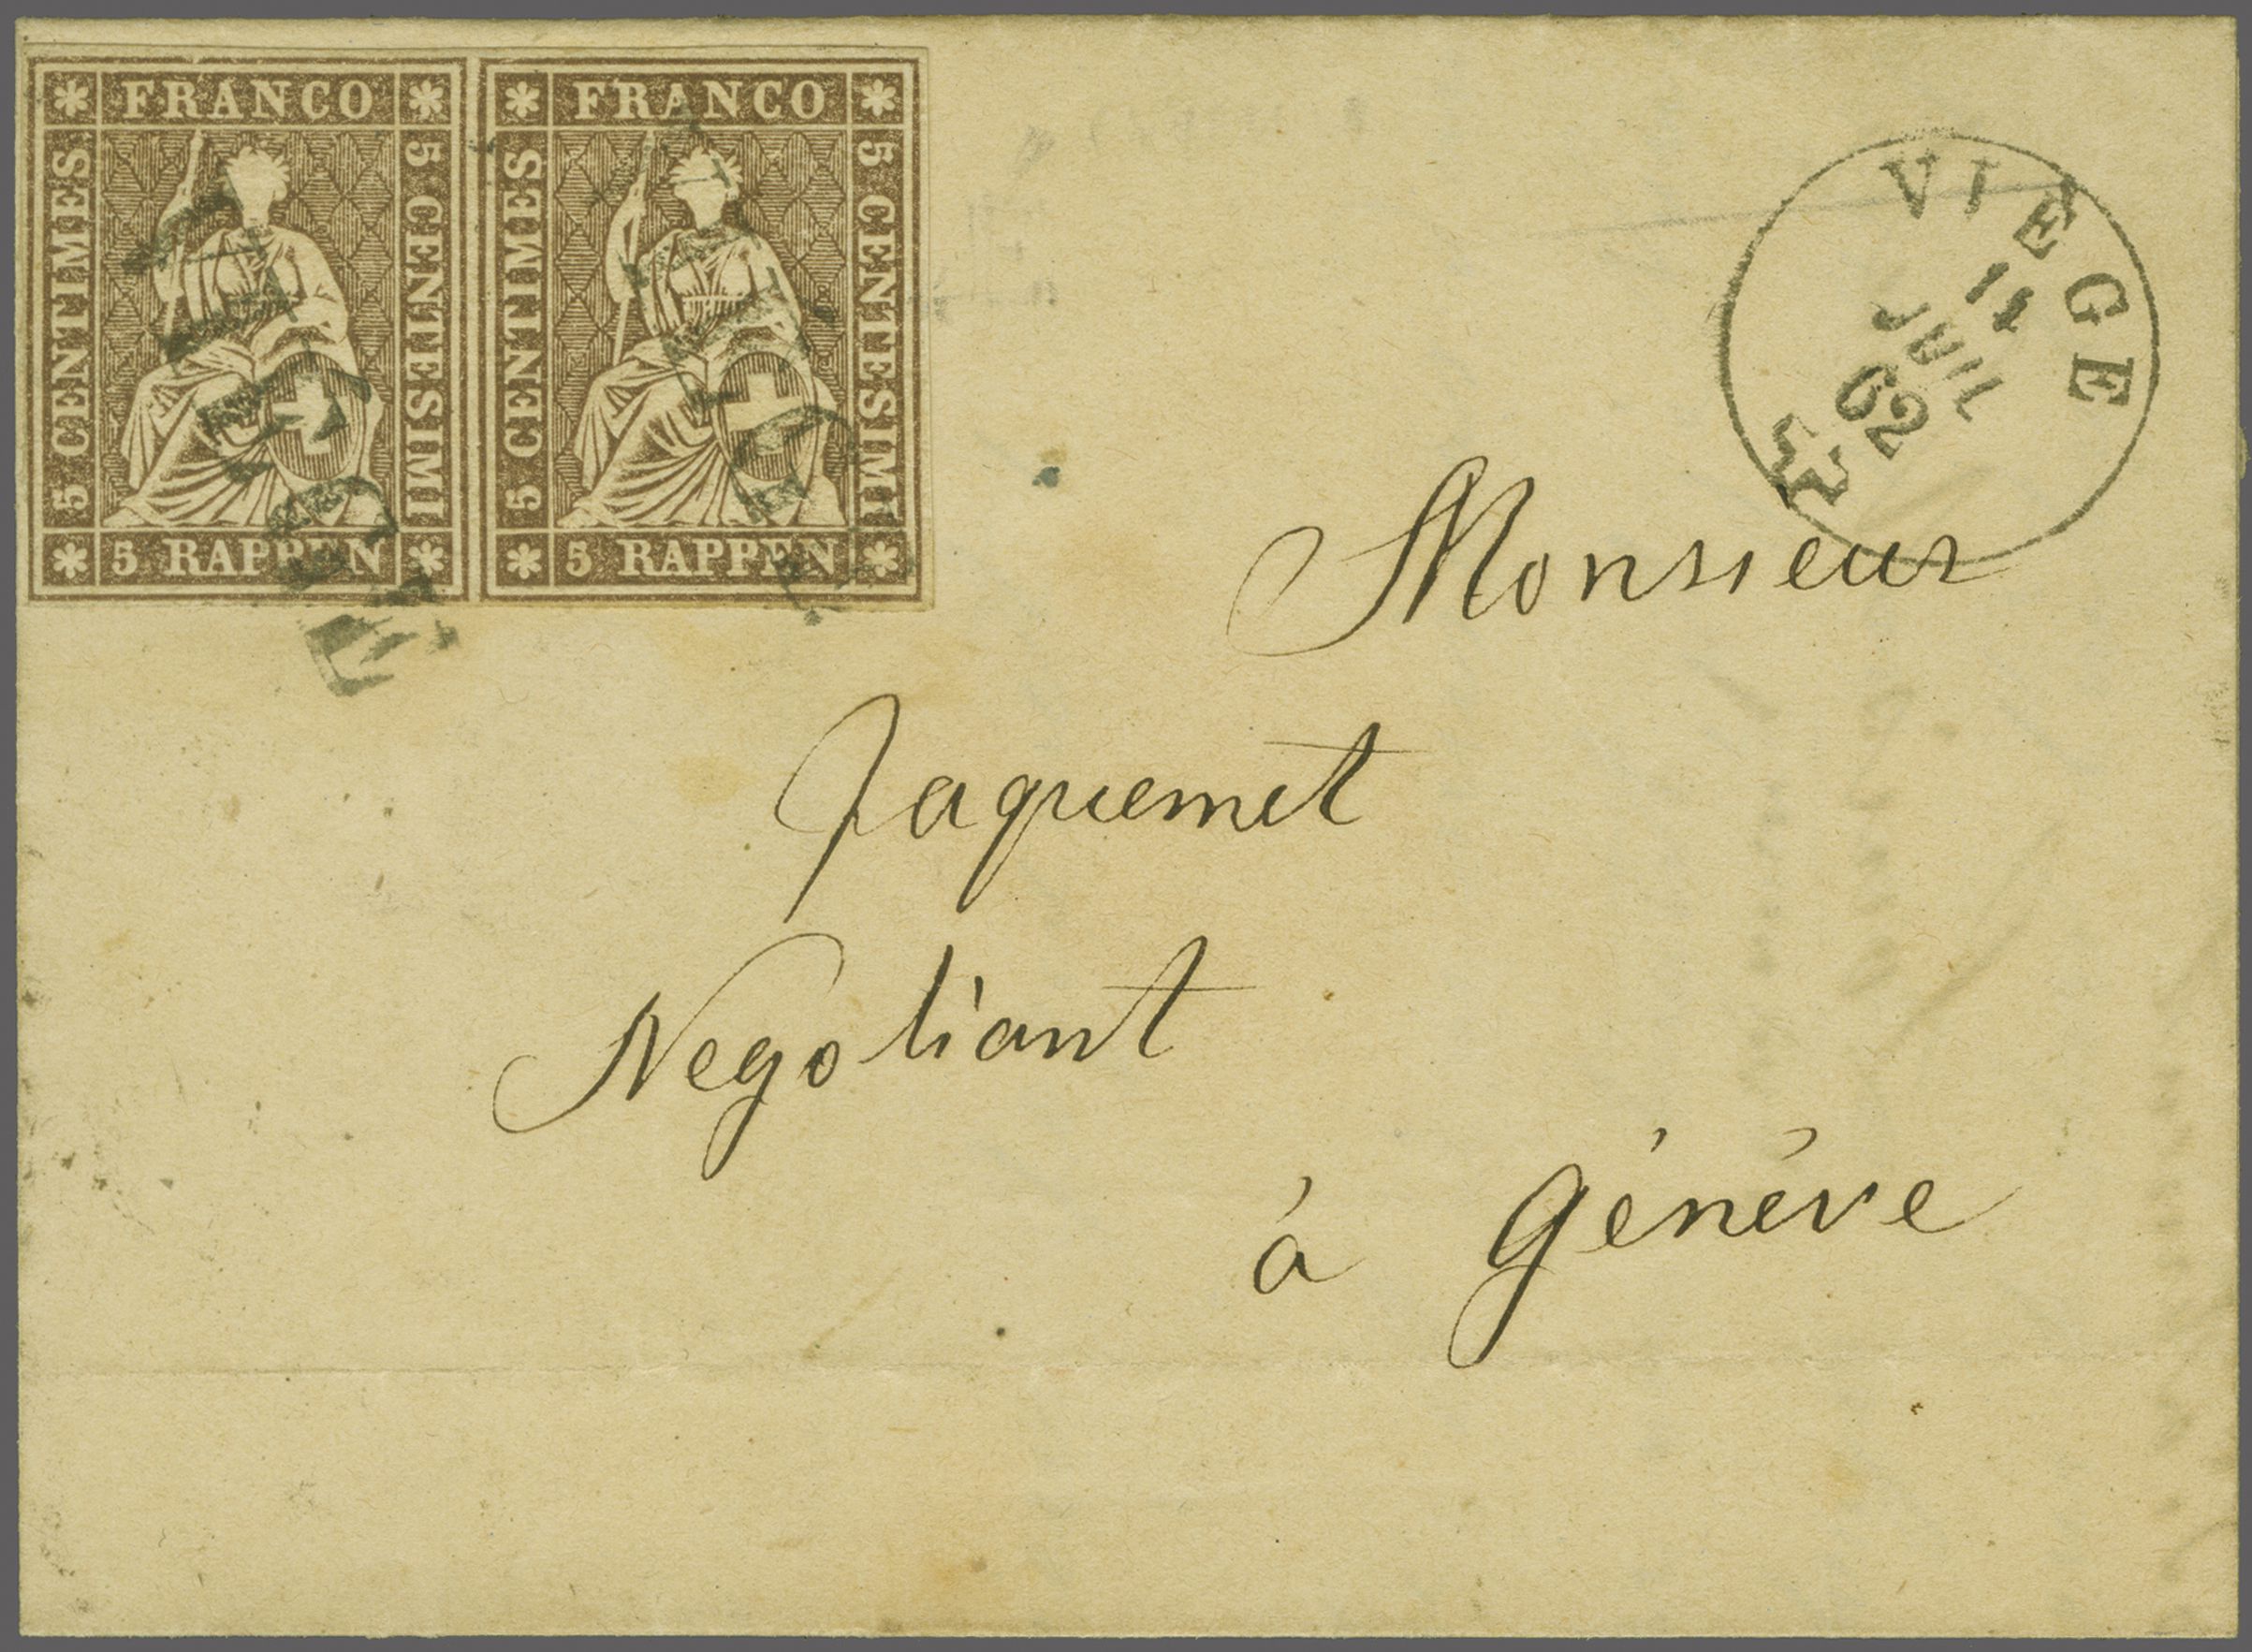 FRANCO
5 CENTIMES
5 CENTESIMI
5 RAPPEN
FRANCO
5 CENTIMES
5 CENTESIMI
5 RAPPEN
VIÈGE
14
JUIL
62
Monsieur
Jaquemet
Negotiant
à Génève